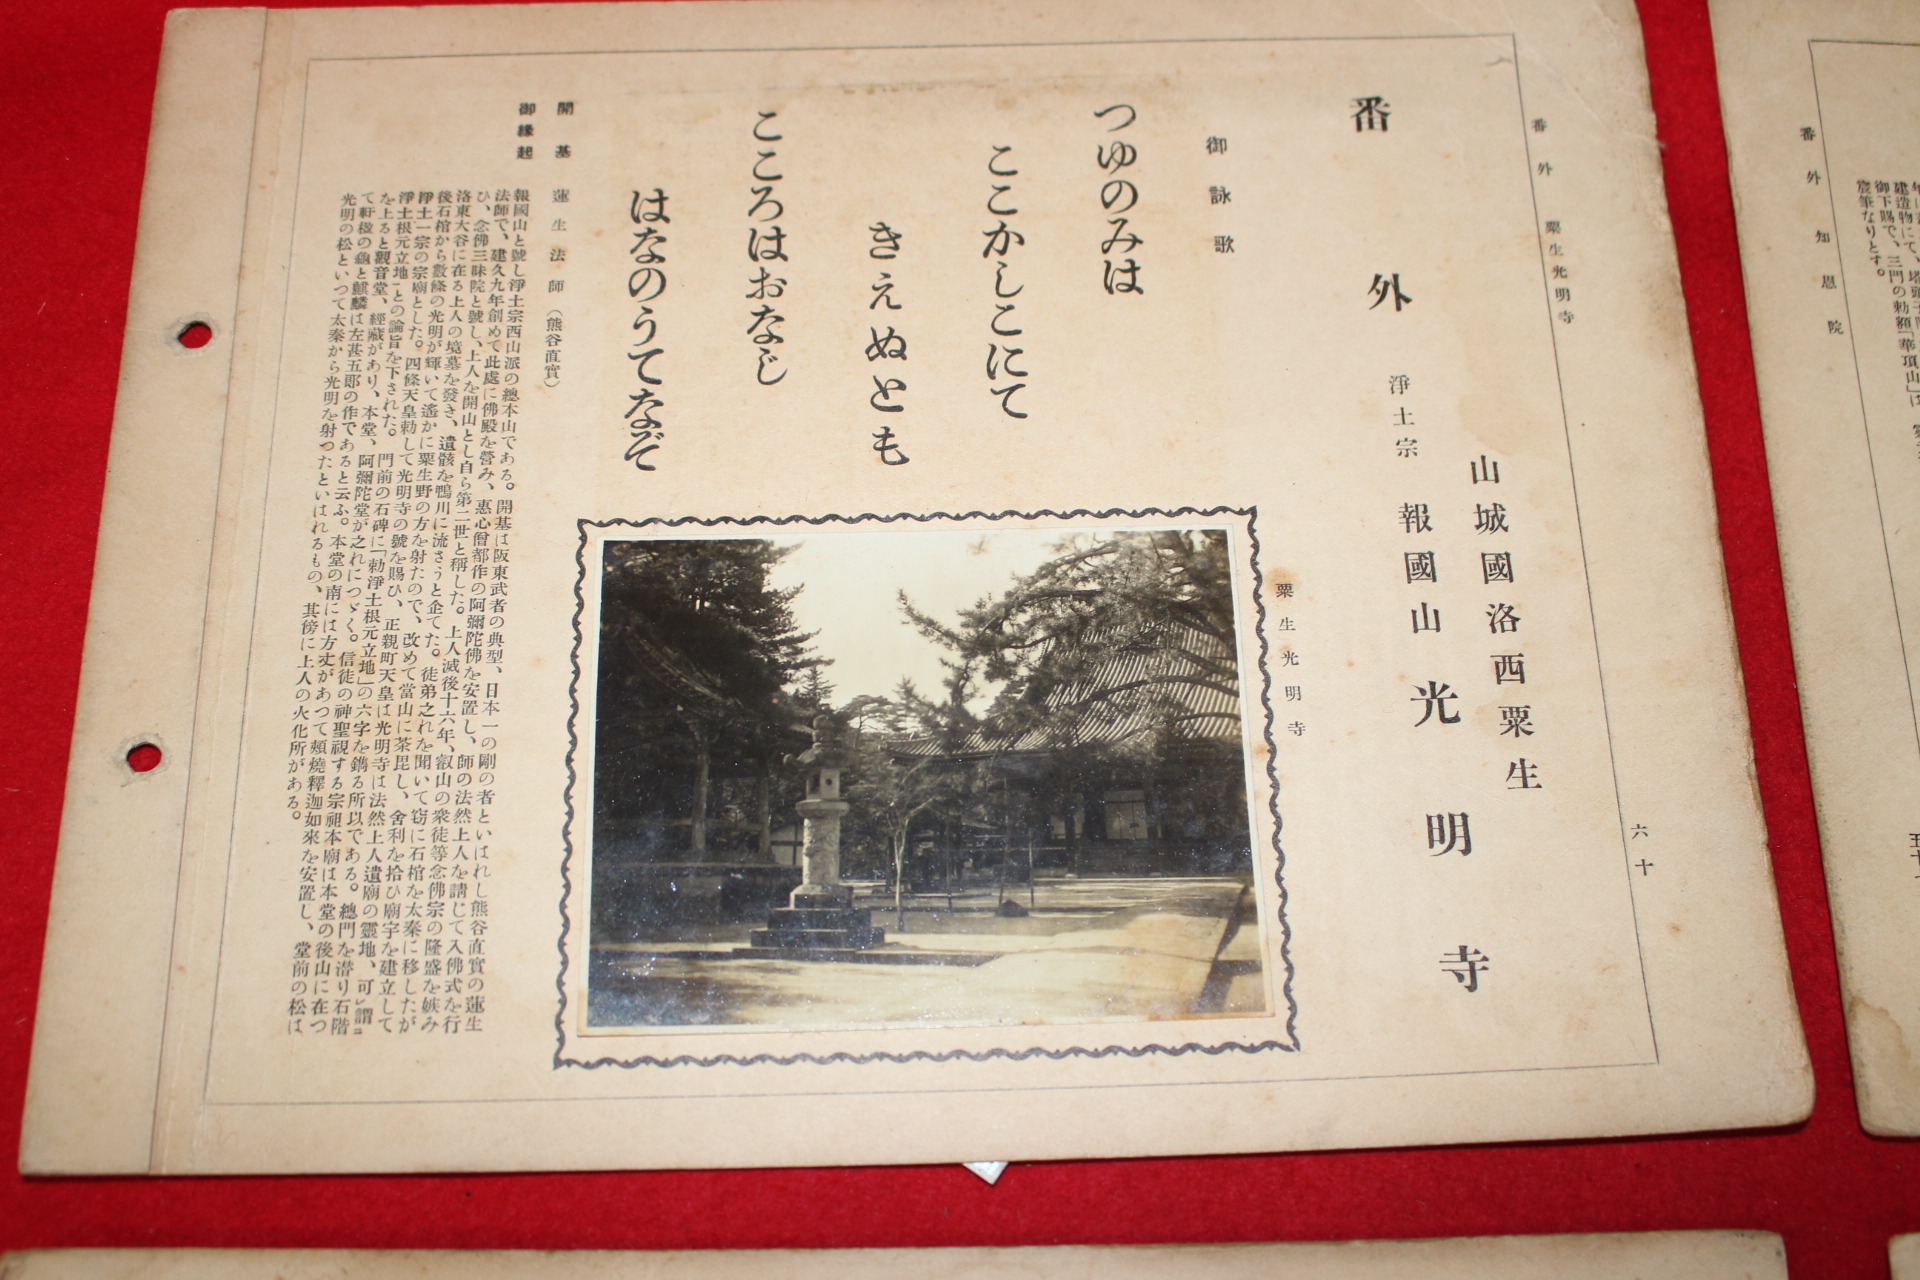 番外 粟生光明寺
六十
番外
山城國洛西粟生
淨土宗 報國山 光明寺
御詠歌
つゆのみは
ここかしこにて
きえぬとも
こころはおなじ
はなのうてなぞ
粟生光明寺
開基 蓮生法師（熊谷直實）
御緣起
報國山と號し淨土宗西山派の總本山である。開基は阪東武者の典型、日本一の剛の者といはれし熊谷直實の蓮生
法師で、建久九年創めて此處に佛殿を營み、惠心僧都作の阿彌陀佛を安置し、師の法然上人を請じて入佛式を行
ひ、念佛三昧院と號し、上人を開山とし自ら第二世と稱した。上人滅後十六年、叡山の衆徒等念佛宗の隆盛を嫉み
洛東大谷に在る上人の境墓を發き、遺骸を鴨川に流さうと企てた。徒弟之れを聞いて窃に石棺を太秦に移したが
後石棺から數條の光明が輝いて遙かに粟生野の方を射たので、改めて當山に茶毘し、舍利を拾ひ廟宇を建立して
淨土一宗の宗廟とした。四條天皇勅して光明寺の號を賜ひ、正親町天皇は光明寺は法然上人遺廟の靈地、可謂
淨土根元立地」との論旨を下された。門前の石碑に「勅淨土根元立地」の六字を鐫る所以である。總門を潜り石階
を上ると觀音堂、經藏があり、本堂、阿彌陀堂が之れにつゞく。信徒の神聖視する宗祖本廟は本堂の後山に在つ
て軒樑の龜と麒麟は左甚五郎の作であると云ふ。本堂の南には方丈があつて頰燒釋迦如來を安置し、堂前の松は
光明の松といつて太秦から光明を射つたといはれるもの、其傍に上人の火化所がある。
番外 知恩院
建造物にて、塔頭
御下賜で、三門の勅額「華頂山」は
宸筆なりとす。